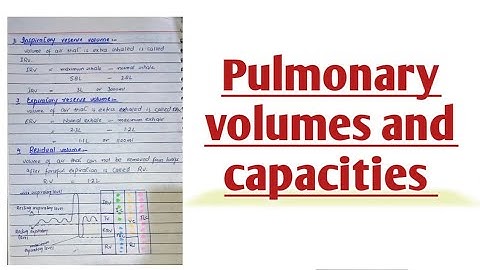 2) Inspiratory reserve volume :-
volume of air that is extra inhaled is called
IRV.
IRV = maximum inhale - normal inhale
5.8L - 2.8L
IRV = 3L or 3000ml
3. Expiratory reserve volume :-
volume of air that is extra exhaled is called
ERV = Normal exhale - maximum exhale
2.3L - 1.2L
1.1L or
4. Residual volume :-
volume of air that can not be removed from
After forceful expiration is called RV.
R.V = 1.2L
Resting
IRV
TV
ERV
RV
VC
Pulmonary
volumes and
capacities